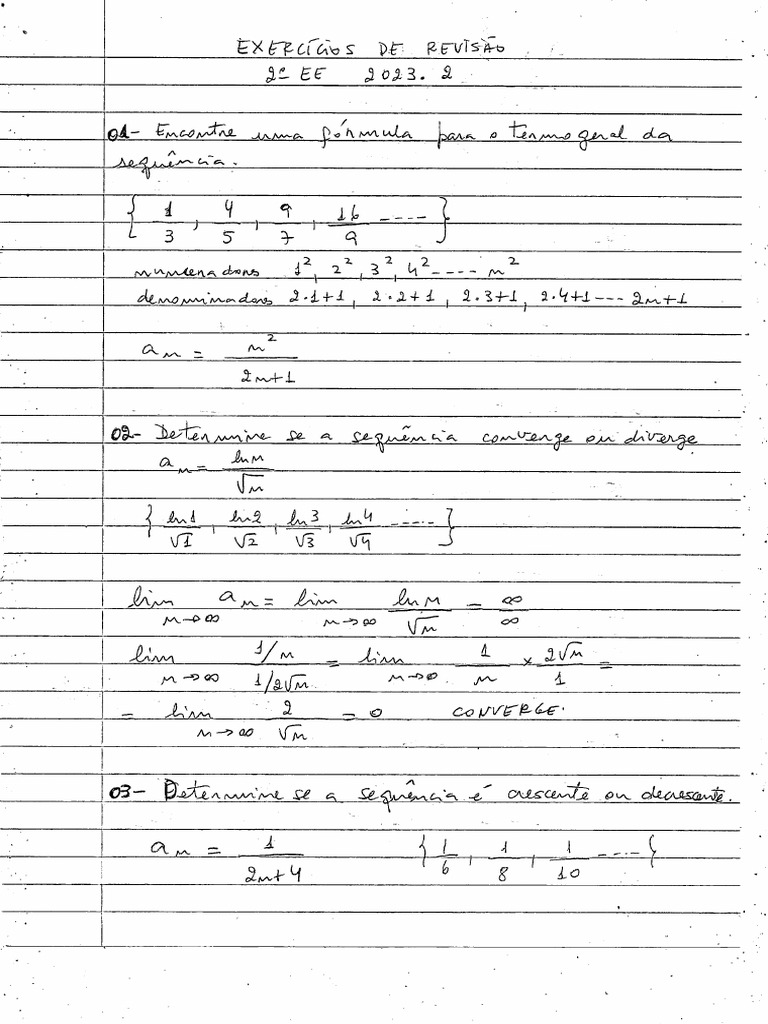 EXERCÍCIOS DE REVISÃO
2º EE 2023.2
01- Encontre uma fórmula para o termo geral da
sequência.
{ 1/3 , 4/5 , 9/7 , 16/9 ---- }
numeradores 1², 2², 3², 4² ---- n²
denominadores 2·1+1, 2·2+1, 2·3+1, 2·4+1 --- 2n+1
a_n = n²/(2n+1)
02- Determine se a sequência converge ou diverge
a_n = ln n/√n
{ ln1/√1 , ln2/√2 , ln3/√3 , ln4/√4 ----- }
lim n→∞ a_n = lim n→∞ ln n/√n = ∞/∞
lim n→∞ (1/n)/(1/2√n) = lim n→∞ 1/n × 2√n/1 =
= lim n→∞ 2/√n = 0 CONVERGE.
03- Determine se a sequência é crescente ou decrescente.
a_n = 1/(2n+4) { 1/6 , 1/8 , 1/10 ---- }